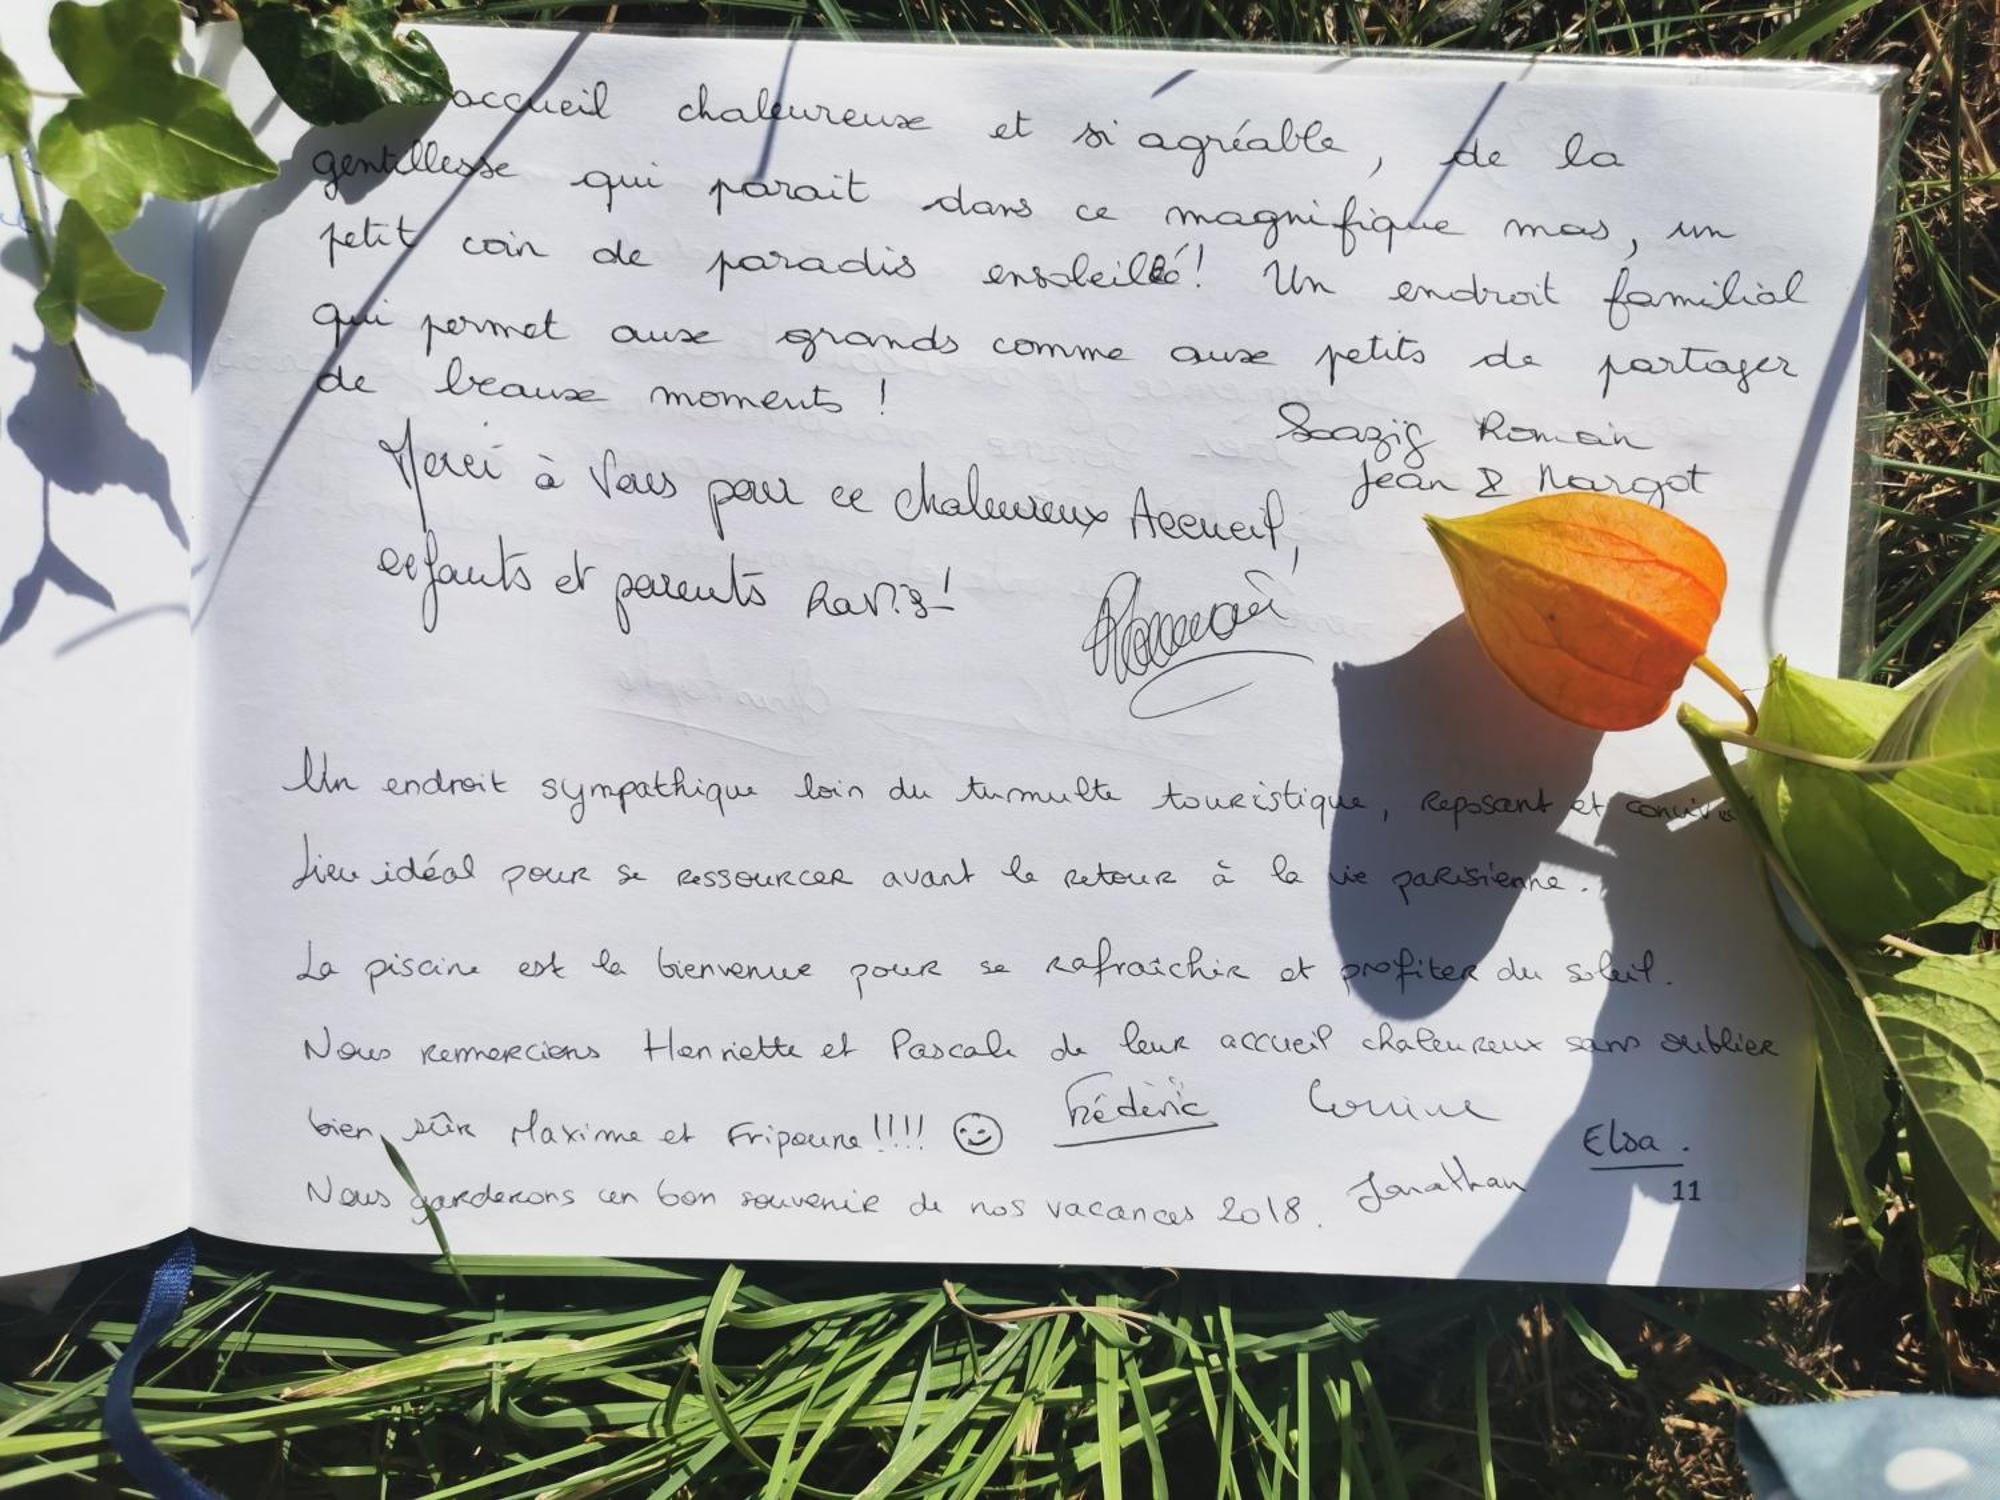 accueil chaleureux et si agréable, de la
gentillesse qui parait dans ce magnifique mas, un
petit coin de paradis ensoleillé! Un endroit familial
qui permet aux grands comme aux petits de partager
de beaux moments !
Soazig Romain
Jean & Margot
Merci à Vous pour ce chaleureux Accueil,
enfants et parents Ravis!
Romain
Un endroit sympathique loin du tumulte touristique, reposant et
Lieu idéal pour se ressourcer avant le retour à la vie parisienne.
La piscine est la bienvenue pour se rafraîchir et profiter du soleil.
Nous remercions Henriette et Pascale de leur accueil chaleureux sans oublier
bien sûr Maxime et Fripoune!!!! ☺ Frédéric Corrine
Elsa.
Nous garderons un bon souvenir de nos vacances 2018. Jonathan
11